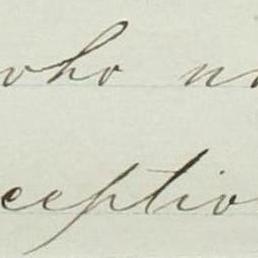 who no
ceptio